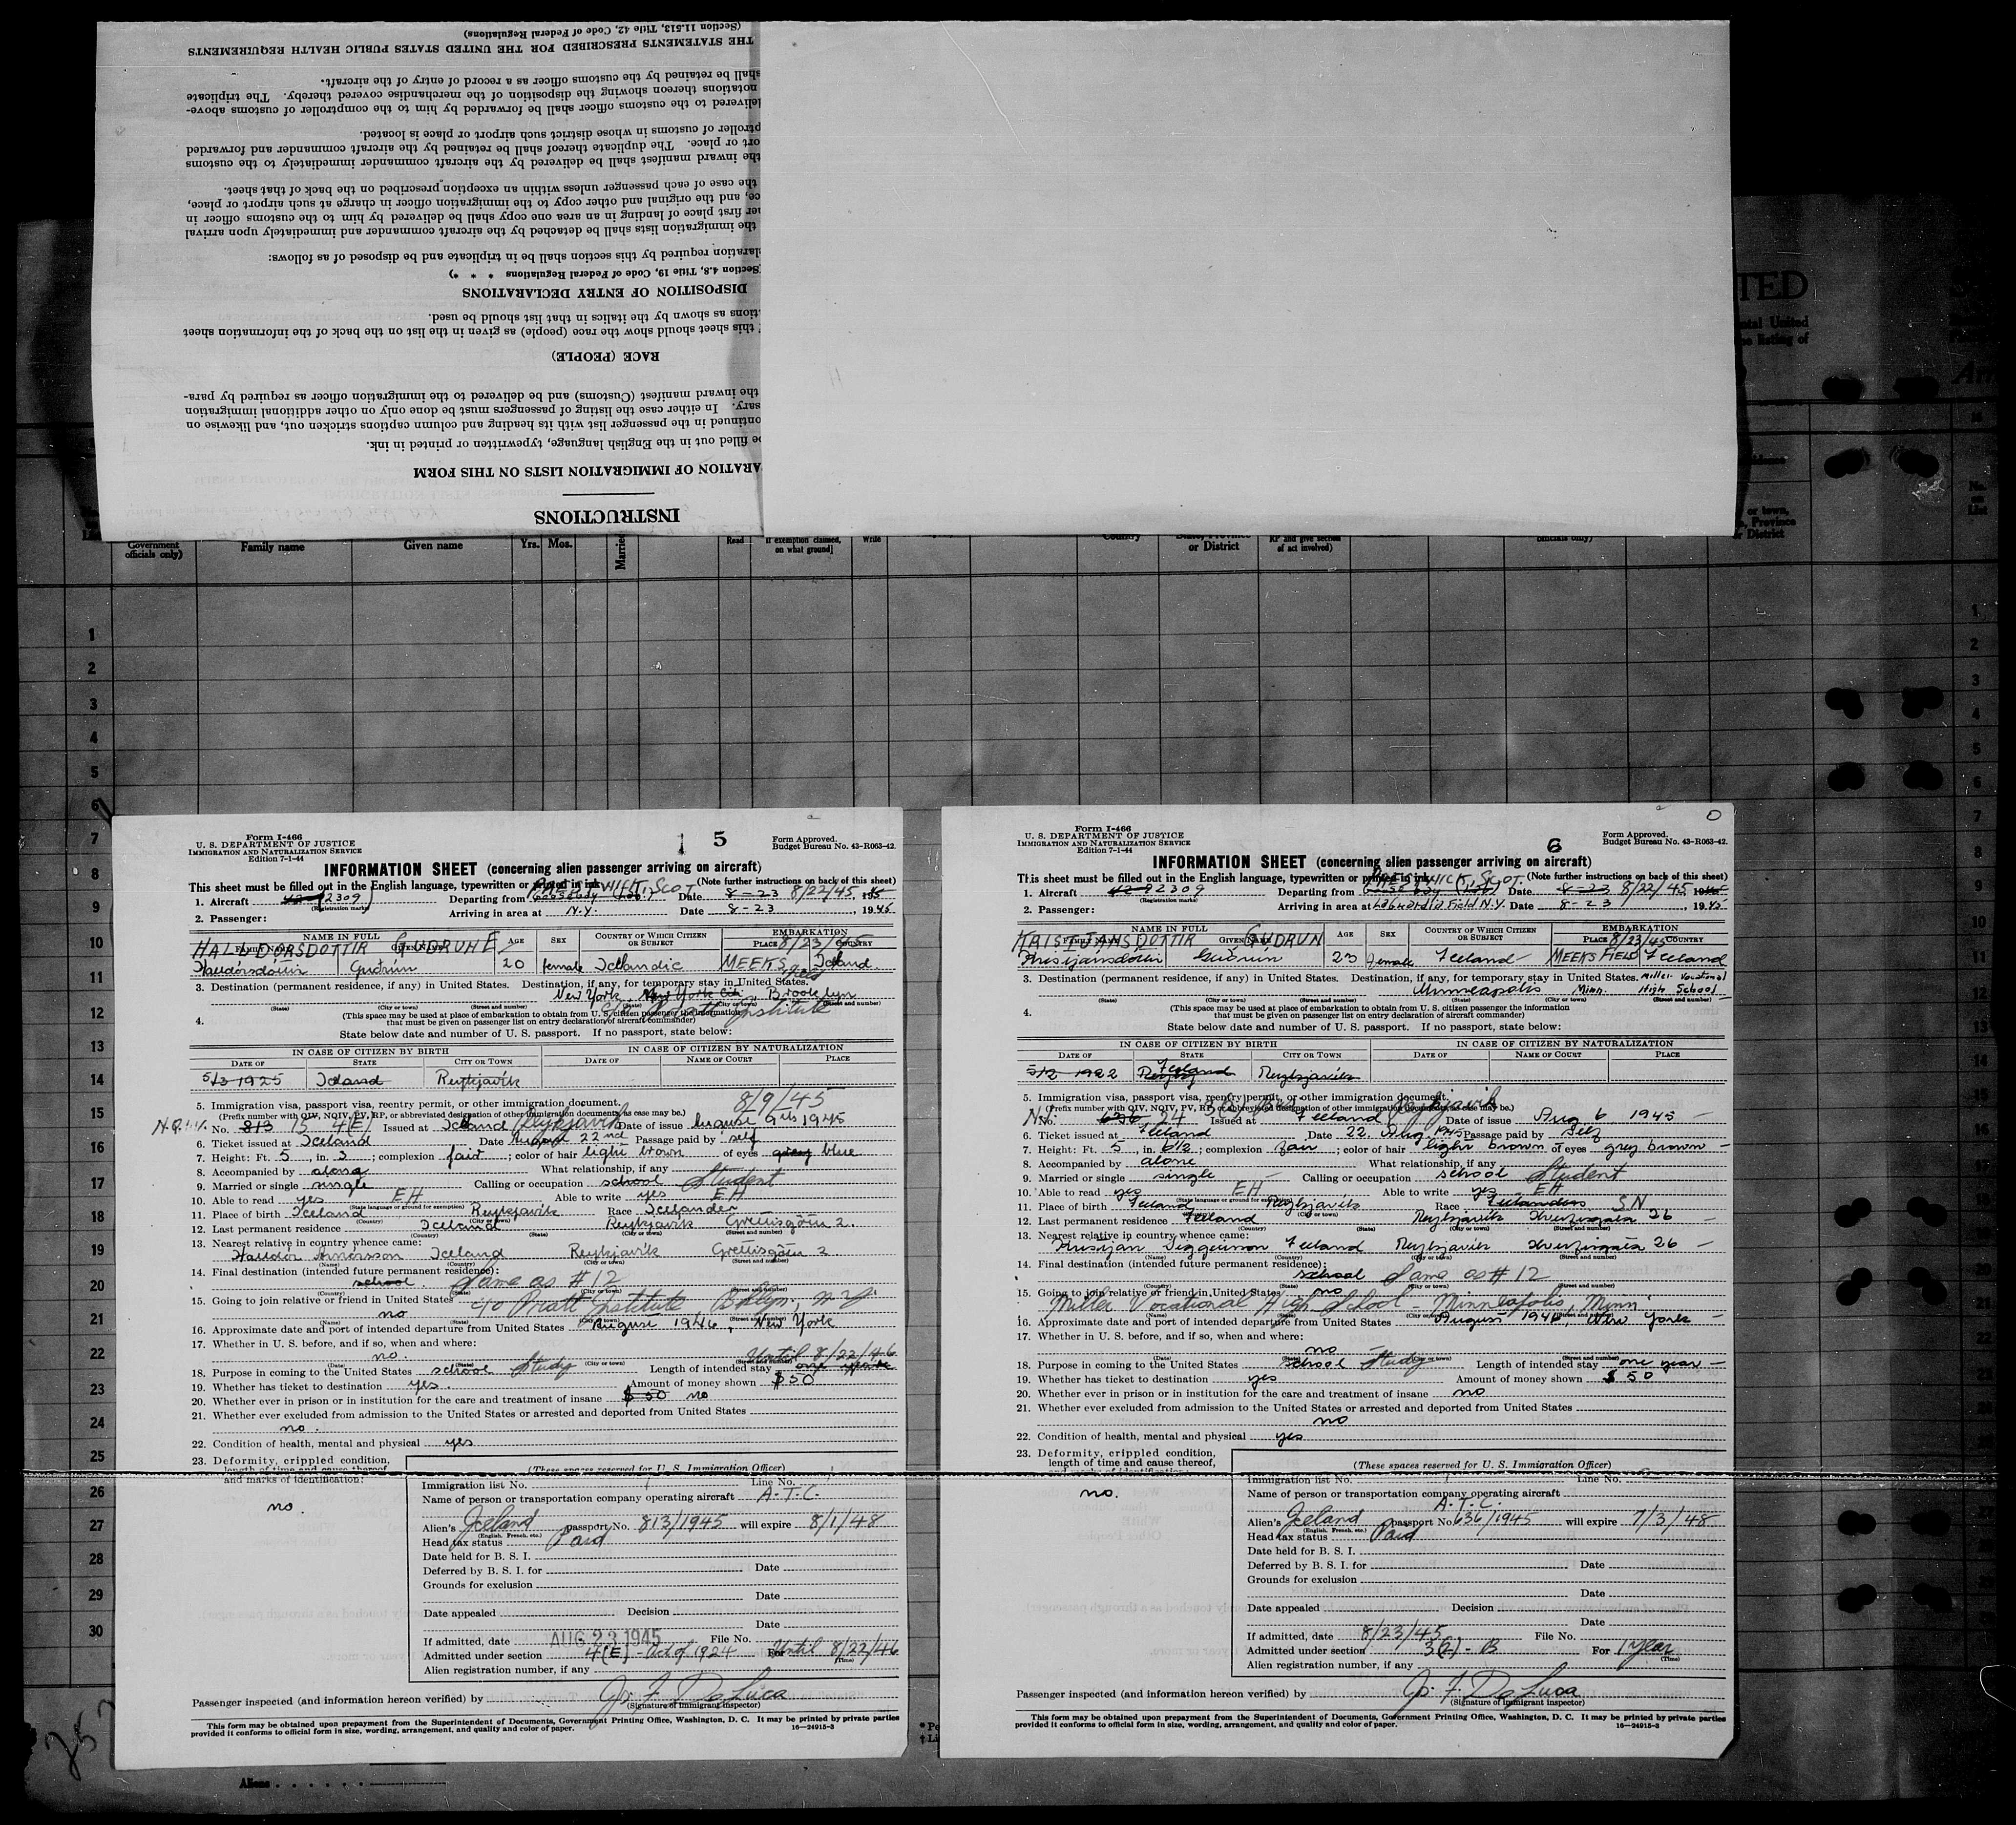 (Section 11.513, Title 42, Code of Federal Regulations)
THE STATEMENTS PRESCRIBED FOR THE UNITED STATES PUBLIC HEALTH REQUIREMENTS
shall be retained by the customs officer as a record of entry of the aircraft.
notations thereon showing the disposition of the merchandise covered thereby. The triplicate
delivered to the customs officer shall be forwarded by him to the comptroller of customs above-
ptroller of customs in whose district such airport or place is located.
ort or place. The duplicate thereof shall be retained by the aircraft commander and forwarded
the inward manifest shall be delivered by the aircraft commander immediately to the customs
the case of each passenger unless within an exception prescribed on the back of that sheet.
ce, and the original and other copy to the immigration officer in charge at such airport or place,
er first place of landing in an area one copy shall be delivered by him to the customs officer in
the immigration lists shall be detached by the aircraft commander and immediately upon arrival
laration required by this section shall be in triplicate and be disposed of as follows:
(Section 4.8, Title 19, Code of Federal Regulations * * *)
DISPOSITION OF ENTRY DECLARATIONS
tions as shown by the italics in that list should be used.
this sheet should show the race (people) as given in the list on the back of the information sheet
RACE (PEOPLE)
the inward manifest (Customs) and be delivered to the immigration officer as required by para-
sary. In either case the listing of passengers must be done only on other additional immigration
ontinued in the passenger list with its heading and column captions stricken out, and likewise on
be filled out in the English language, typewritten or printed in ink.
ARATION OF IMMIGRATION LISTS ON THIS FORM
INSTRUCTIONS
TED
ntal United
e listing of
Government officials only)
Family name
Given name
Yrs. Mos.
Married
Read
if exemption claimed, on what ground]
Write
Country
State, Province or District
RP and give section of act involved)
officials only)
or town, Province or District
No. on List
Form I-466
U. S. DEPARTMENT OF JUSTICE
IMMIGRATION AND NATURALIZATION SERVICE
Edition 7-1-44
5
Form Approved.
Budget Bureau No. 43-R063-42.
INFORMATION SHEET (concerning alien passenger arriving on aircraft)
This sheet must be filled out in the English language, typewritten or printed in ink. (Note further instructions on back of this sheet)
1. Aircraft 2309 (Registration marks) Departing from PRESTWICK, SCOT. Date 8-23 8/22/45, 1945
2. Passenger: Arriving in area at N.Y. Date 8-23, 1945
NAME IN FULL AGE SEX COUNTRY OF WHICH CITIZEN OR SUBJECT EMBARKATION
FAMILY NAME GIVEN NAME PLACE 8/23/45 COUNTRY
HALLDORSDOTTIR GUDRUN E
Halldórsdóttir Guðrun 20 female Icelandic MEEKS Field Iceland
3. Destination (permanent residence, if any) in United States. Destination, if any, for temporary stay in United States.
New York, New York City Brooklyn
(State) (City or town) (Street and number) (State) (City or town) (Street and number)
Pratt Institute
4. (This space may be used at place of embarkation to obtain from U. S. citizen passenger the information
that must be given on passenger list on entry declaration of aircraft commander)
State below date and number of U. S. passport. If no passport, state below:
IN CASE OF CITIZEN BY BIRTH IN CASE OF CITIZEN BY NATURALIZATION
DATE OF STATE CITY OR TOWN DATE OF NAME OF COURT PLACE
5/3 1925 Iceland Reykjavik
5. Immigration visa, passport visa, reentry permit, or other immigration document. 8/9/45
(Prefix number with QIV, NQIV, PV, RP, or abbreviated designation of other immigration documents, as case may be.)
No. 813 15 4(E) Issued at Iceland Reykjavik Date of issue August 9th 1945
6. Ticket issued at Iceland Date August 22nd Passage paid by self
7. Height: Ft. 5, in. 3; complexion fair; color of hair light brown of eyes grey blue
8. Accompanied by alone What relationship, if any
9. Married or single single Calling or occupation school Student
10. Able to read yes EH Able to write yes EH
(State language or ground for exemption)
11. Place of birth Iceland Reykjavik Race Icelander
(Country) (City or town)
12. Last permanent residence Iceland Reykjavik Grettisgötu 2.
(Country) (State) (City or town) (Street and number)
13. Nearest relative in country whence came:
Halldór Arnórsson Iceland Reykjavik Grettisgötu 2
(Name) (Country) (City or town) (Street and number)
14. Final destination (intended future permanent residence):
school. Same as #12
(Country) (State) (City or town) (Street and number)
15. Going to join relative or friend in United States c/o Pratt Institute, Bklyn, N.Y.
no
(Name) (State) (City or town) (Street and number)
16. Approximate date and port of intended departure from United States August 1946, New York
17. Whether in U. S. before, and if so, when and where:
no Until 8/22/46
(Date) (State) (City or town) (Street and number)
18. Purpose in coming to the United States school Study Length of intended stay one year
19. Whether has ticket to destination yes. Amount of money shown $50
20. Whether ever in prison or in institution for the care and treatment of insane $50 no
21. Whether ever excluded from admission to the United States or arrested and deported from United States
no.
22. Condition of health, mental and physical yes
23. Deformity, crippled condition,
length of time and cause thereof
and marks of identification:
no.
(These spaces reserved for U. S. Immigration Officer)
Immigration list No. 1 Line No.
Name of person or transportation company operating aircraft A.T.C.
Alien's Iceland passport No. 813/1945 will expire 8/1/48
(English, French, etc.)
Head tax status Paid
Date held for B. S. I.
Deferred by B. S. I. for Date
Grounds for exclusion
Date
Date appealed Decision
Date
If admitted, date AUG 23 1945 File No.
Admitted under section 4(E) - Act of 1924 For Until 8/22/46
(Time)
Alien registration number, if any
Passenger inspected (and information hereon verified) by Jr. F. DeLuca
(Signature of immigrant inspector)
This form may be obtained upon prepayment from the Superintendent of Documents, Government Printing Office, Washington, D. C. It may be printed by private parties
provided it conforms to official form in size, wording, arrangement, and quality and color of paper. 16—24915-3
Form I-466
U. S. DEPARTMENT OF JUSTICE
IMMIGRATION AND NATURALIZATION SERVICE
Edition 7-1-44
6
Form Approved.
Budget Bureau No. 43-R063-42.
INFORMATION SHEET (concerning alien passenger arriving on aircraft)
This sheet must be filled out in the English language, typewritten or printed in ink. (Note further instructions on back of this sheet)
1. Aircraft 2309 (Registration marks) Departing from PRESTWICK, SCOT. Date 8-23 8/22/45 1945
2. Passenger: Arriving in area at LaGuardia Field N.Y. Date 8-23, 1945
NAME IN FULL AGE SEX COUNTRY OF WHICH CITIZEN OR SUBJECT EMBARKATION
FAMILY NAME GIVEN NAME PLACE 8/23/45 COUNTRY
KRISTJANSDOTTIR GUDRUN
Kristjansdóttir Guðrun 23 female Iceland MEEKS FIELD Iceland
3. Destination (permanent residence, if any) in United States. Destination, if any, for temporary stay in United States. Miller Vocational
Minneapolis Minn. High School
(State) (City or town) (Street and number) (State) (City or town) (Street and number)
4. (This space may be used at place of embarkation to obtain from U. S. citizen passenger the information
that must be given on passenger list on entry declaration of aircraft commander)
State below date and number of U. S. passport. If no passport, state below:
IN CASE OF CITIZEN BY BIRTH IN CASE OF CITIZEN BY NATURALIZATION
DATE OF STATE CITY OR TOWN DATE OF NAME OF COURT PLACE
1922 Iceland Reykjavik
5. Immigration visa, passport visa, reentry permit, or other immigration document.
(Prefix number with QIV, NQIV, PV, RP, or abbreviated designation of other immigration documents, as case may be.)
No. 636 34 3(2) Issued at Iceland Reykjavik Date of issue Aug 6 1945
6. Ticket issued at Iceland Date 22. Aug 1945 Passage paid by Self
7. Height: Ft. 5, in. 6½; complexion fair; color of hair light brown of eyes grey brown
8. Accompanied by alone What relationship, if any
9. Married or single single Calling or occupation school Student
10. Able to read yes EH Able to write yes EH
(State language or ground for exemption)
11. Place of birth Iceland Reykjavik Race Icelander SN
(Country) (City or town)
12. Last permanent residence Iceland Reykjavik Hverfisgata 26
(Country) (State) (City or town) (Street and number)
13. Nearest relative in country whence came:
Kristjan Siggeirsson Iceland Reykjavik Hverfisgata 26
(Name) (Country) (City or town) (Street and number)
14. Final destination (intended future permanent residence):
school Same as #12
(Country) (State) (City or town) (Street and number)
15. Going to join relative or friend in United States no
Miller Vocational High School - Minneapolis, Minn
(Name) (State) (City or town) (Street and number)
16. Approximate date and port of intended departure from United States August 1946, New York
17. Whether in U. S. before, and if so, when and where:
no
(Date) (State) (City or town) (Street and number)
18. Purpose in coming to the United States School Study Length of intended stay one year
19. Whether has ticket to destination yes Amount of money shown $50
20. Whether ever in prison or in institution for the care and treatment of insane no
21. Whether ever excluded from admission to the United States or arrested and deported from United States
no
22. Condition of health, mental and physical yes
23. Deformity, crippled condition,
length of time and cause thereof,
and marks of identification:
no.
(These spaces reserved for U. S. Immigration Officer)
Immigration list No. 1 Line No.
Name of person or transportation company operating aircraft
A.T.C.
Alien's Iceland passport No. 636/1945 will expire 7/3/48
(English, French, etc.)
Head tax status Paid
Date held for B. S. I.
Deferred by B. S. I. for Date
Grounds for exclusion
Date
Date appealed Decision
Date
If admitted, date 8/23/45 File No.
Admitted under section 3(2) - B For 1 Year
(Time)
Alien registration number, if any
Passenger inspected (and information hereon verified) by Jr. F. DeLuca
(Signature of immigrant inspector)
This form may be obtained upon prepayment from the Superintendent of Documents, Government Printing Office, Washington, D. C. It may be printed by private parties
provided it conforms to official form in size, wording, arrangement, and quality and color of paper. 16—24915-3
1
2
3
4
5
6
7
8
9
10
11
12
13
14
15
16
17
18
19
20
21
22
23
24
25
26
27
28
29
30
Aliens